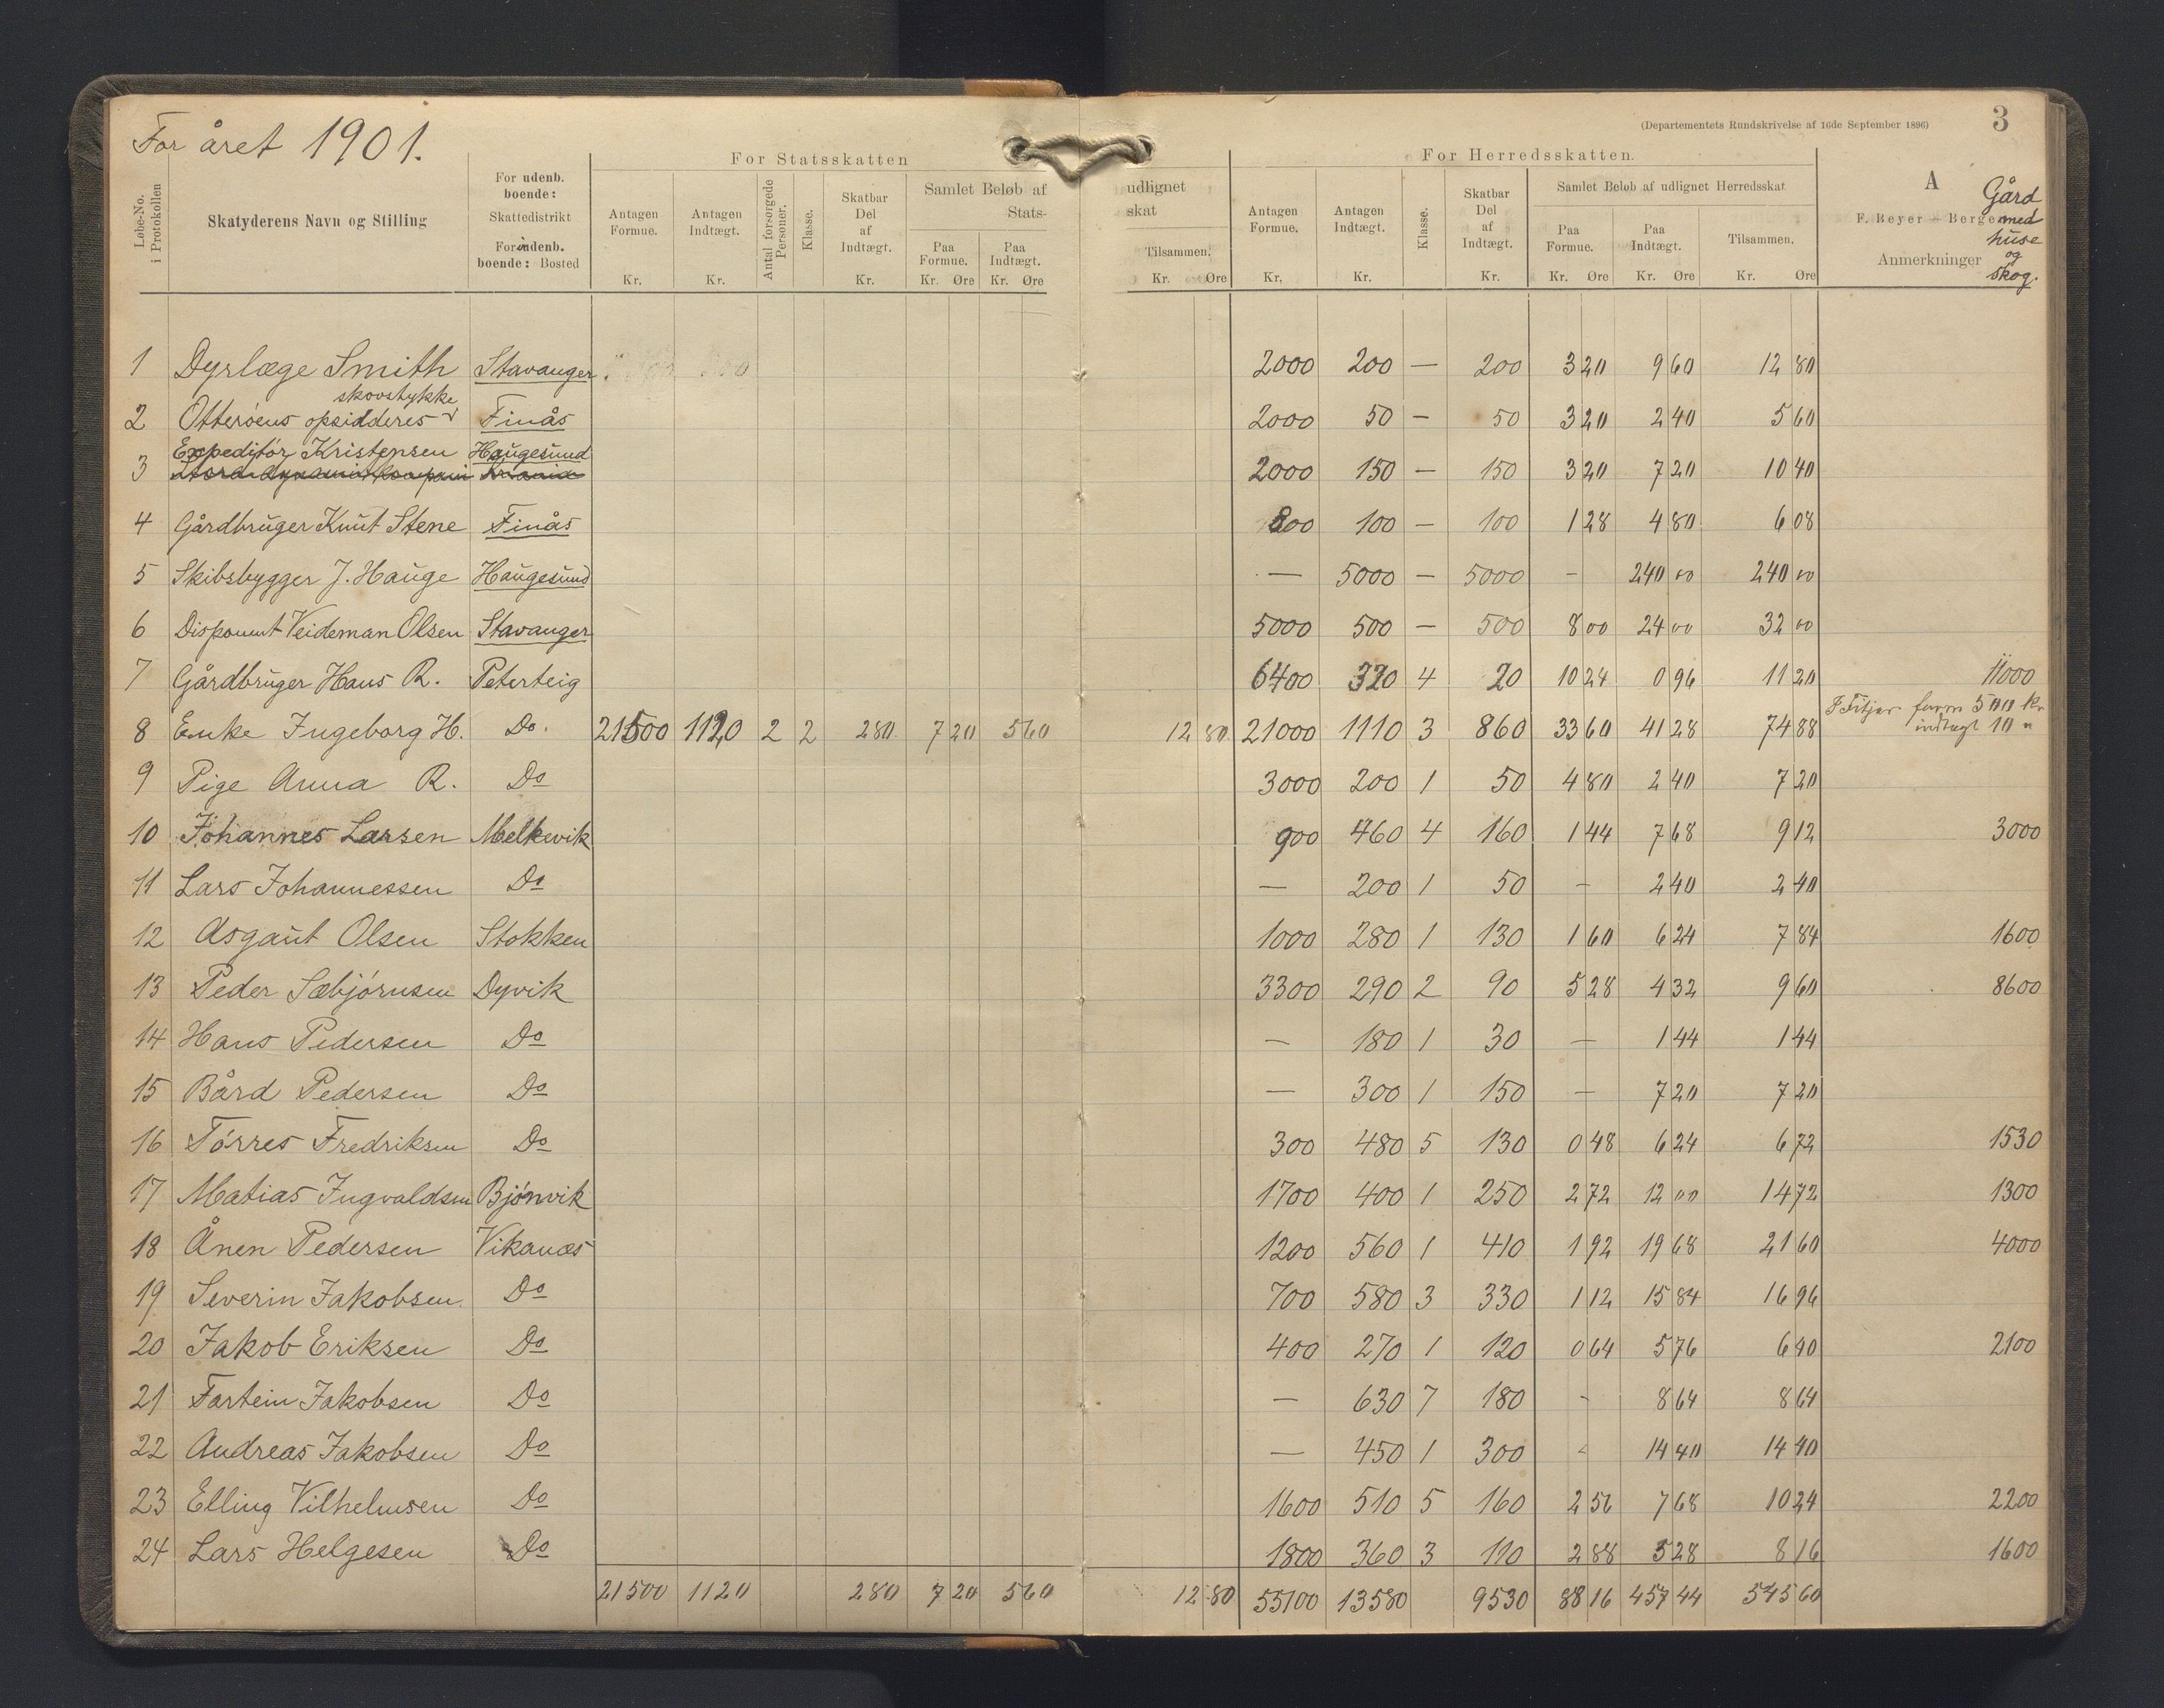 For året 1901.
(Departementets Rundskrivelse af 16de September 1896)
3
For Statsskatten
For Herredsskatten.
Løbe-No. i Protokollen
Skatyderens Navn og Stilling
For udenb. boende: Skattedistrikt
For indenb. boende: Bosted
Antagen Formue. Kr.
Antagen Indtægt. Kr.
Antal forsørgede Personer.
Klasse.
Skatbar Del af Indtægt. Kr.
Samlet Beløb af udlignet Stats-skat
Paa Formue. Kr. Øre
Paa Indtægt. Kr. Øre
Tilsammen. Kr. Øre
Antagen Formue. Kr.
Antagen Indtægt. Kr.
Klasse.
Skatbar Del af Indtægt. Kr.
Samlet Beløb af udlignet Herredsskat
Paa Formue. Kr. Øre
Paa Indtægt. Kr. Øre
Tilsammen. Kr. Øre
A
F. Beyer - Bergen
Anmerkninger
Gård med huse og skog.
1 Dyrlæge Smith Stavanger 2000 200 — 200 3 20 9 60 12 80
skovstykke
2 Otterøens opsidderes Finås 2000 50 — 50 3 20 2 40 5 60
Expeditør Kristensen Haugesund
3 2000 150 — 150 3 20 7 20 10 40
4 Gårdbruger Knut Stene Finås 800 100 — 100 1 28 4 80 6 08
5 Skibsbygger J. Hauge Haugesund — 5000 — 5000 - 240 00 240 00
6 Disponent Veideman Olsen Stavanger 5000 500 — 500 8 00 24 00 32 00
7 Gårdbruger Hans R. Peterteig 6400 320 4 20 10 24 0 96 11 20 11000
8 Enke Ingeborg H. Do. 21500 1120 2 2 280 7 20 5 60 12 80 21000 1110 3 860 33 60 41 28 74 88 I Fitjar form 500 kr indtægt 10 "
9 Pige Anna R. Do 3000 200 1 50 4 80 2 40 7 20
10 Johannes Larsen Melkevik 900 460 4 160 1 44 7 68 9 12 3000
11 Lars Johannessen Do — 200 1 50 - 2 40 2 40
12 Asgaut Olsen Stokken 1000 280 1 130 1 60 6 24 7 84 1600
13 Peder Sæbjørnsen Dyvik 3300 290 2 90 5 28 4 32 9 60 8600
14 Hans Pedersen Do — 180 1 30 — 1 44 1 44
15 Bård Pedersen Do — 300 1 150 — 7 20 7 20
16 Tørres Fredriksen Do 300 480 5 130 0 48 6 24 6 72 1530
17 Matias Ingvaldsen Bjønvik 1700 400 1 250 2 72 12 00 14 72 1300
18 Ånen Pedersen Vikanæs 1200 560 1 410 1 92 19 68 21 60 4000
19 Severin Jakobsen. Do 700 580 3 330 1 12 15 84 16 96
20 Jakob Eriksen Do 400 270 1 120 0 64 5 76 6 40 2100
21 Fartein Jakobsen Do — 630 7 180 - 8 64 8 64
22 Andreas Jakobsen Do — 450 1 300 - 14 40 14 40
23 Elling Vilhelmsen Do 1600 510 5 160 2 56 7 68 10 24 2200
24 Lars Helgesen Do 1800 360 3 110 2 88 5 28 8 16 1600
21500 1120 280 7 20 5 60 12 80 55100 13580 9530 88 16 457 44 545 60